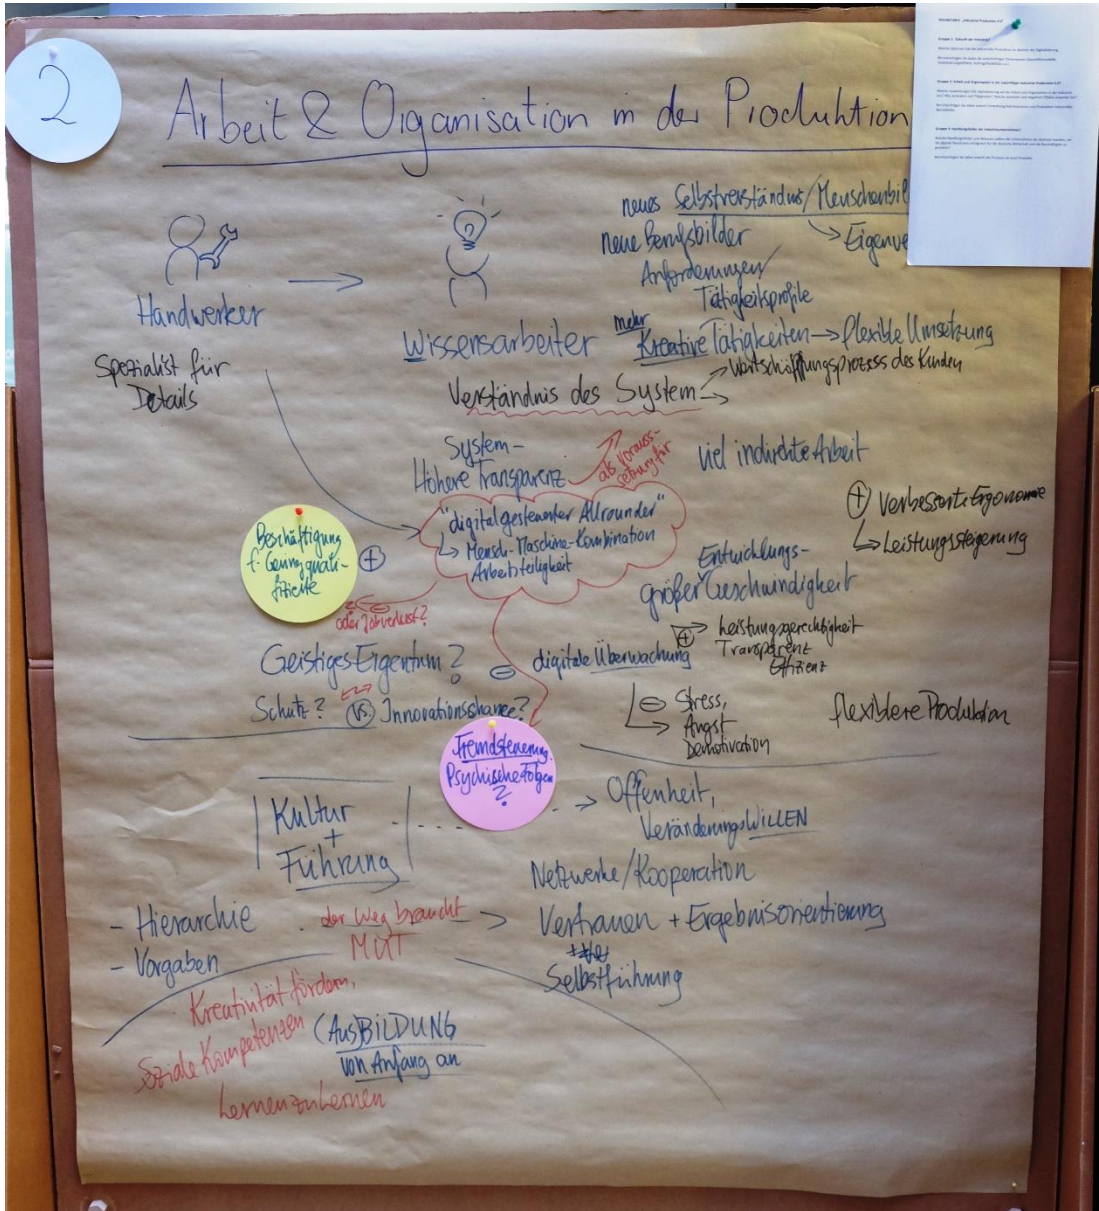 2
Arbeit & Organisation in der Produktion
Handwerker
Spezialist für
Details
Wissensarbeiter
neues Selbstverständnis/Menschenbil
Eigenve
neue Berufsbilder
Anforderungen/
Tätigkeitsprofile
mehr
Kreative Tätigkeiten → flexible Umsetzung
Verständnis des System
Wertschöpfungsprozess des Kunden
System-
Höhere Transparenz
als Voraus-
setzung für
viel indirekte Arbeit
"digital gesteuerter Allrounder"
Mensch-Maschine-Kombination
Arbeitsteiligkeit
Beschäftigung
f. Geringquali-
fizierte
+
? -
oder Jobverlust?
+ Verbesserte Ergonomie
Leistungssteigerung
Entwicklungs-
großer Geschwindigkeit
Geistiges Eigentum?
Schutz? VS. Innovationschance?
- digitale Überwachung
+ → Leistungsgerechtigkeit
Transparenz
Effizienz
- Stress,
Angst
Demotivation
flexiblere Produktion
Fremdsteuerung.
Psychische Folgen
?
Kultur
+
Führung
→ Offenheit,
VeränderungsWILLEN
Netzwerke/Kooperation
- Hierarchie
- Vorgaben
der Weg braucht
MUT
→ Vertrauen + Ergebnisorientierung
Selbstführung
Kreativität fördern,
Soziale Kompetenzen
Lernen zu Lernen
(Aus)BILDUNG
von Anfang an